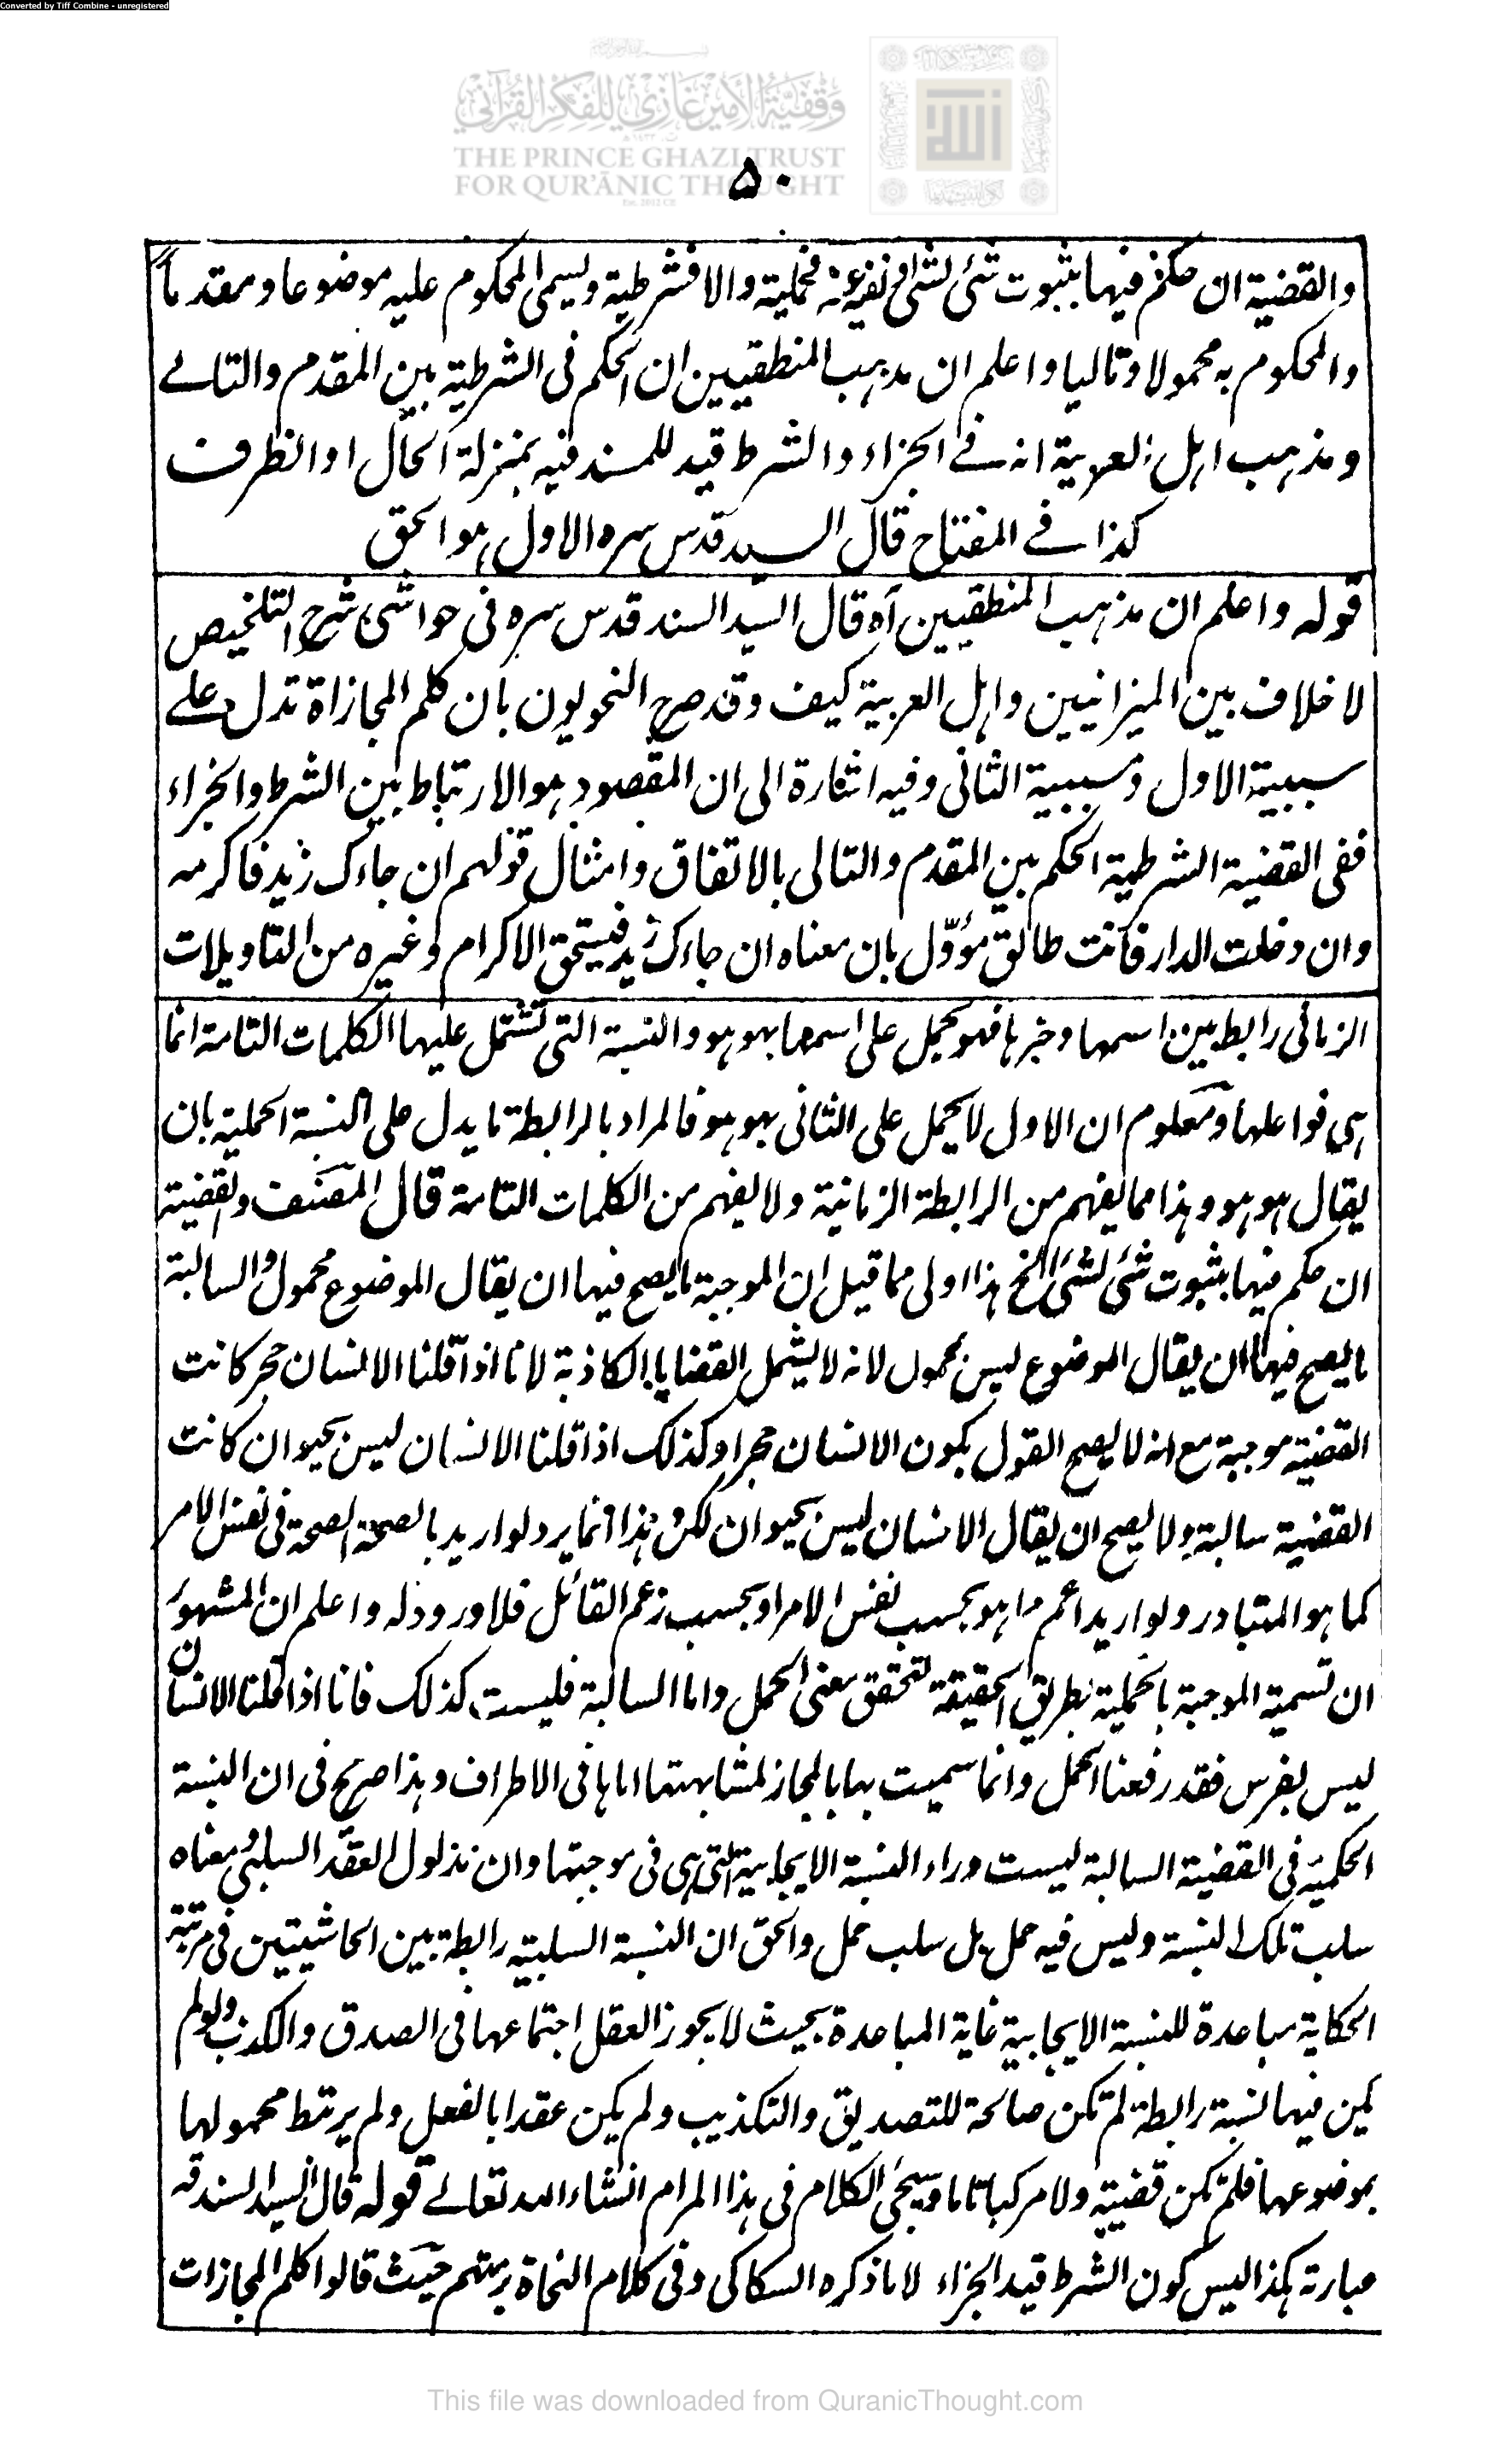 Converted by Tiff Combine - unregistered
وقفية الأمير غازي للفكر القرآني
THE PRINCE GHAZI TRUST
FOR QUR'ĀNIC THOUGHT
Est. 2012 CE
الله
۵۰
والقضية ان حكم فيها بثبوت شئ لشئ او نفيه عنه فحملية والا فشرطية ويسمى المحكوم عليه موضوعا ومقدما
والمحكوم به محمولا وتاليا واعلم ان مذهب المنطقيين ان الحكم فى الشرطية بين المقدم والتالے
ومذهب اهل العربية انه فے الجزاء والشرط قيد للمسند فيه بمنزلة الحال او الظرف
كذا فے المفتاح قال السيد قدس سره الاول هو الحق
قوله واعلم ان مذهب المنطقيين آه قال السيد السند قدس سره فى حواشى شرح التلخيص
لا خلاف بين الميزانيين واهل العربية كيف وقد صرح النحويون بان كلم المجازاة تدل علے
سببية الاول ومسببية الثانى وفيه اشارة الى ان المقصود هو الارتباط بين الشرط والجزاء
ففى القضية الشرطية الحكم بين المقدم والتالى بالاتفاق وامثال قولهم ان جاءك زيد فاكرمه
وان دخلت الدار فانت طالق مؤوّل بان معناه ان جاءك زيد فيستحق الاكرام وغيره من التاويلات
الزمانى رابط بين اسمها وخبرها فهو يحمل على اسمها بهو هو والنسبة التى تشتمل عليها الكلمات التامة انما
هى فواعلها ومعلوم ان الاول لا يحمل على الثانى بهو هو فالمراد بالرابطة ما يدل على النسبة الحملية بان
يقال هو هو وهذا مما يفهم من الرابطة الزمانية ولا يفهم من الكلمات التامة قال المصنف والقضية
ان حكم فيها بثبوت شئ لشئ الخ هذا اولى مما قيل ان الموجبة ما يصح فيها ان يقال الموضوع محمول والسالبة
ما يصح فيها ان يقال الموضوع ليس بمحمول لانه لا يشمل القضايا الكاذبة لانا اذا قلنا الانسان حجر كانت
القضية موجبة مع انه لا يصح القول بكون الانسان حجرا وكذلك اذا قلنا الانسان ليس بحيوان كانت
القضية سالبة ولا يصح ان يقال الانسان ليس بحيوان لكن هذا انما يرد لو اريد بالصحة الصحة فى نفس الامر
كما هو المتبادر ولو اريد اعم مما هو بحسب نفس الامر او بحسب زعم القائل فلا ورود له واعلم ان المشهور
ان تسمية الموجبة بالحملية بطريق الحقيقة لتحقق معنى الحمل واما السالبة فليست كذلك فانا اذا قلنا الانسان
ليس بفرس فقد رفعنا الحمل وانما سميت بها بالمجاز لمشابهتها اياها فى الاطراف وهذا صريح فى ان النسبة
الحكمية فى القضية السالبة ليست وراء النسبة الايجابية التى هى فى موجبتها وان مدلول العقد السلبى ومعناه
سلب تلك النسبة وليس فيه حمل بل سلب حمل والحق ان النسبة السلبية رابطة بين الحاشيتين فى مرتبة
الحكاية مباعدة للنسبة الايجابية غاية المباعدة بحيث لا يجوز العقل اجتماعهما فى الصدق والكذب ولو لم
يكن فيها نسبة رابطة لم تكن صالحة للتصديق والتكذيب ولم يكن عقدا بالفعل ولم يرتبط محمولها
بموضوعها فلم تكن قضية ولا مركبا تاما وسيجئ الكلام فى هذا المرام انشاء الله تعالے قوله قال السيد السند قـ
عبارته هكذا ليس كون الشرط قيد الجزاء لا ما ذكره السكاكى وفى كلام النحاة برمتهم حيث قالوا كلم المجازات
This file was downloaded from QuranicThought.com